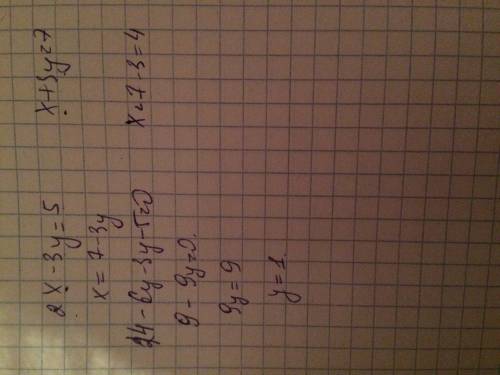 2x - 3y = 5 x + 3y = 7
x = 7 - 3y
14 - 6y - 3y - 5 = 0 x = 7 - 3 = 4
9 - 9y = 0.
9y = 9
y = 1.